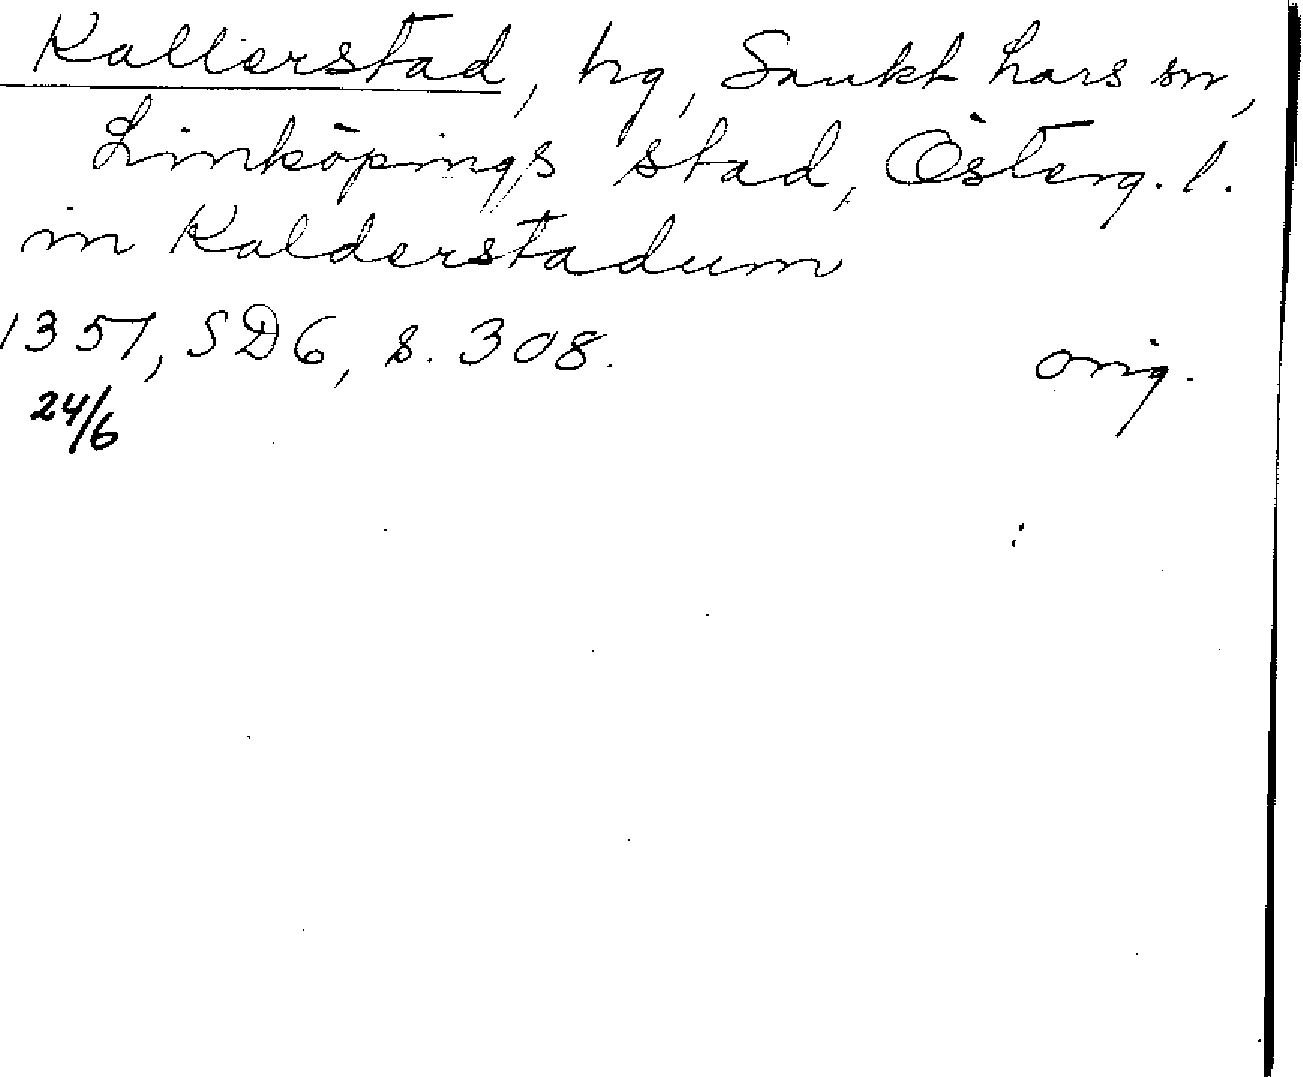 Kallerstad, hg, Sankt Lars sn,
Linköpings stad, Österg. l.
in Kalderstadum
1351, SD6, s. 308. orig.
24/6